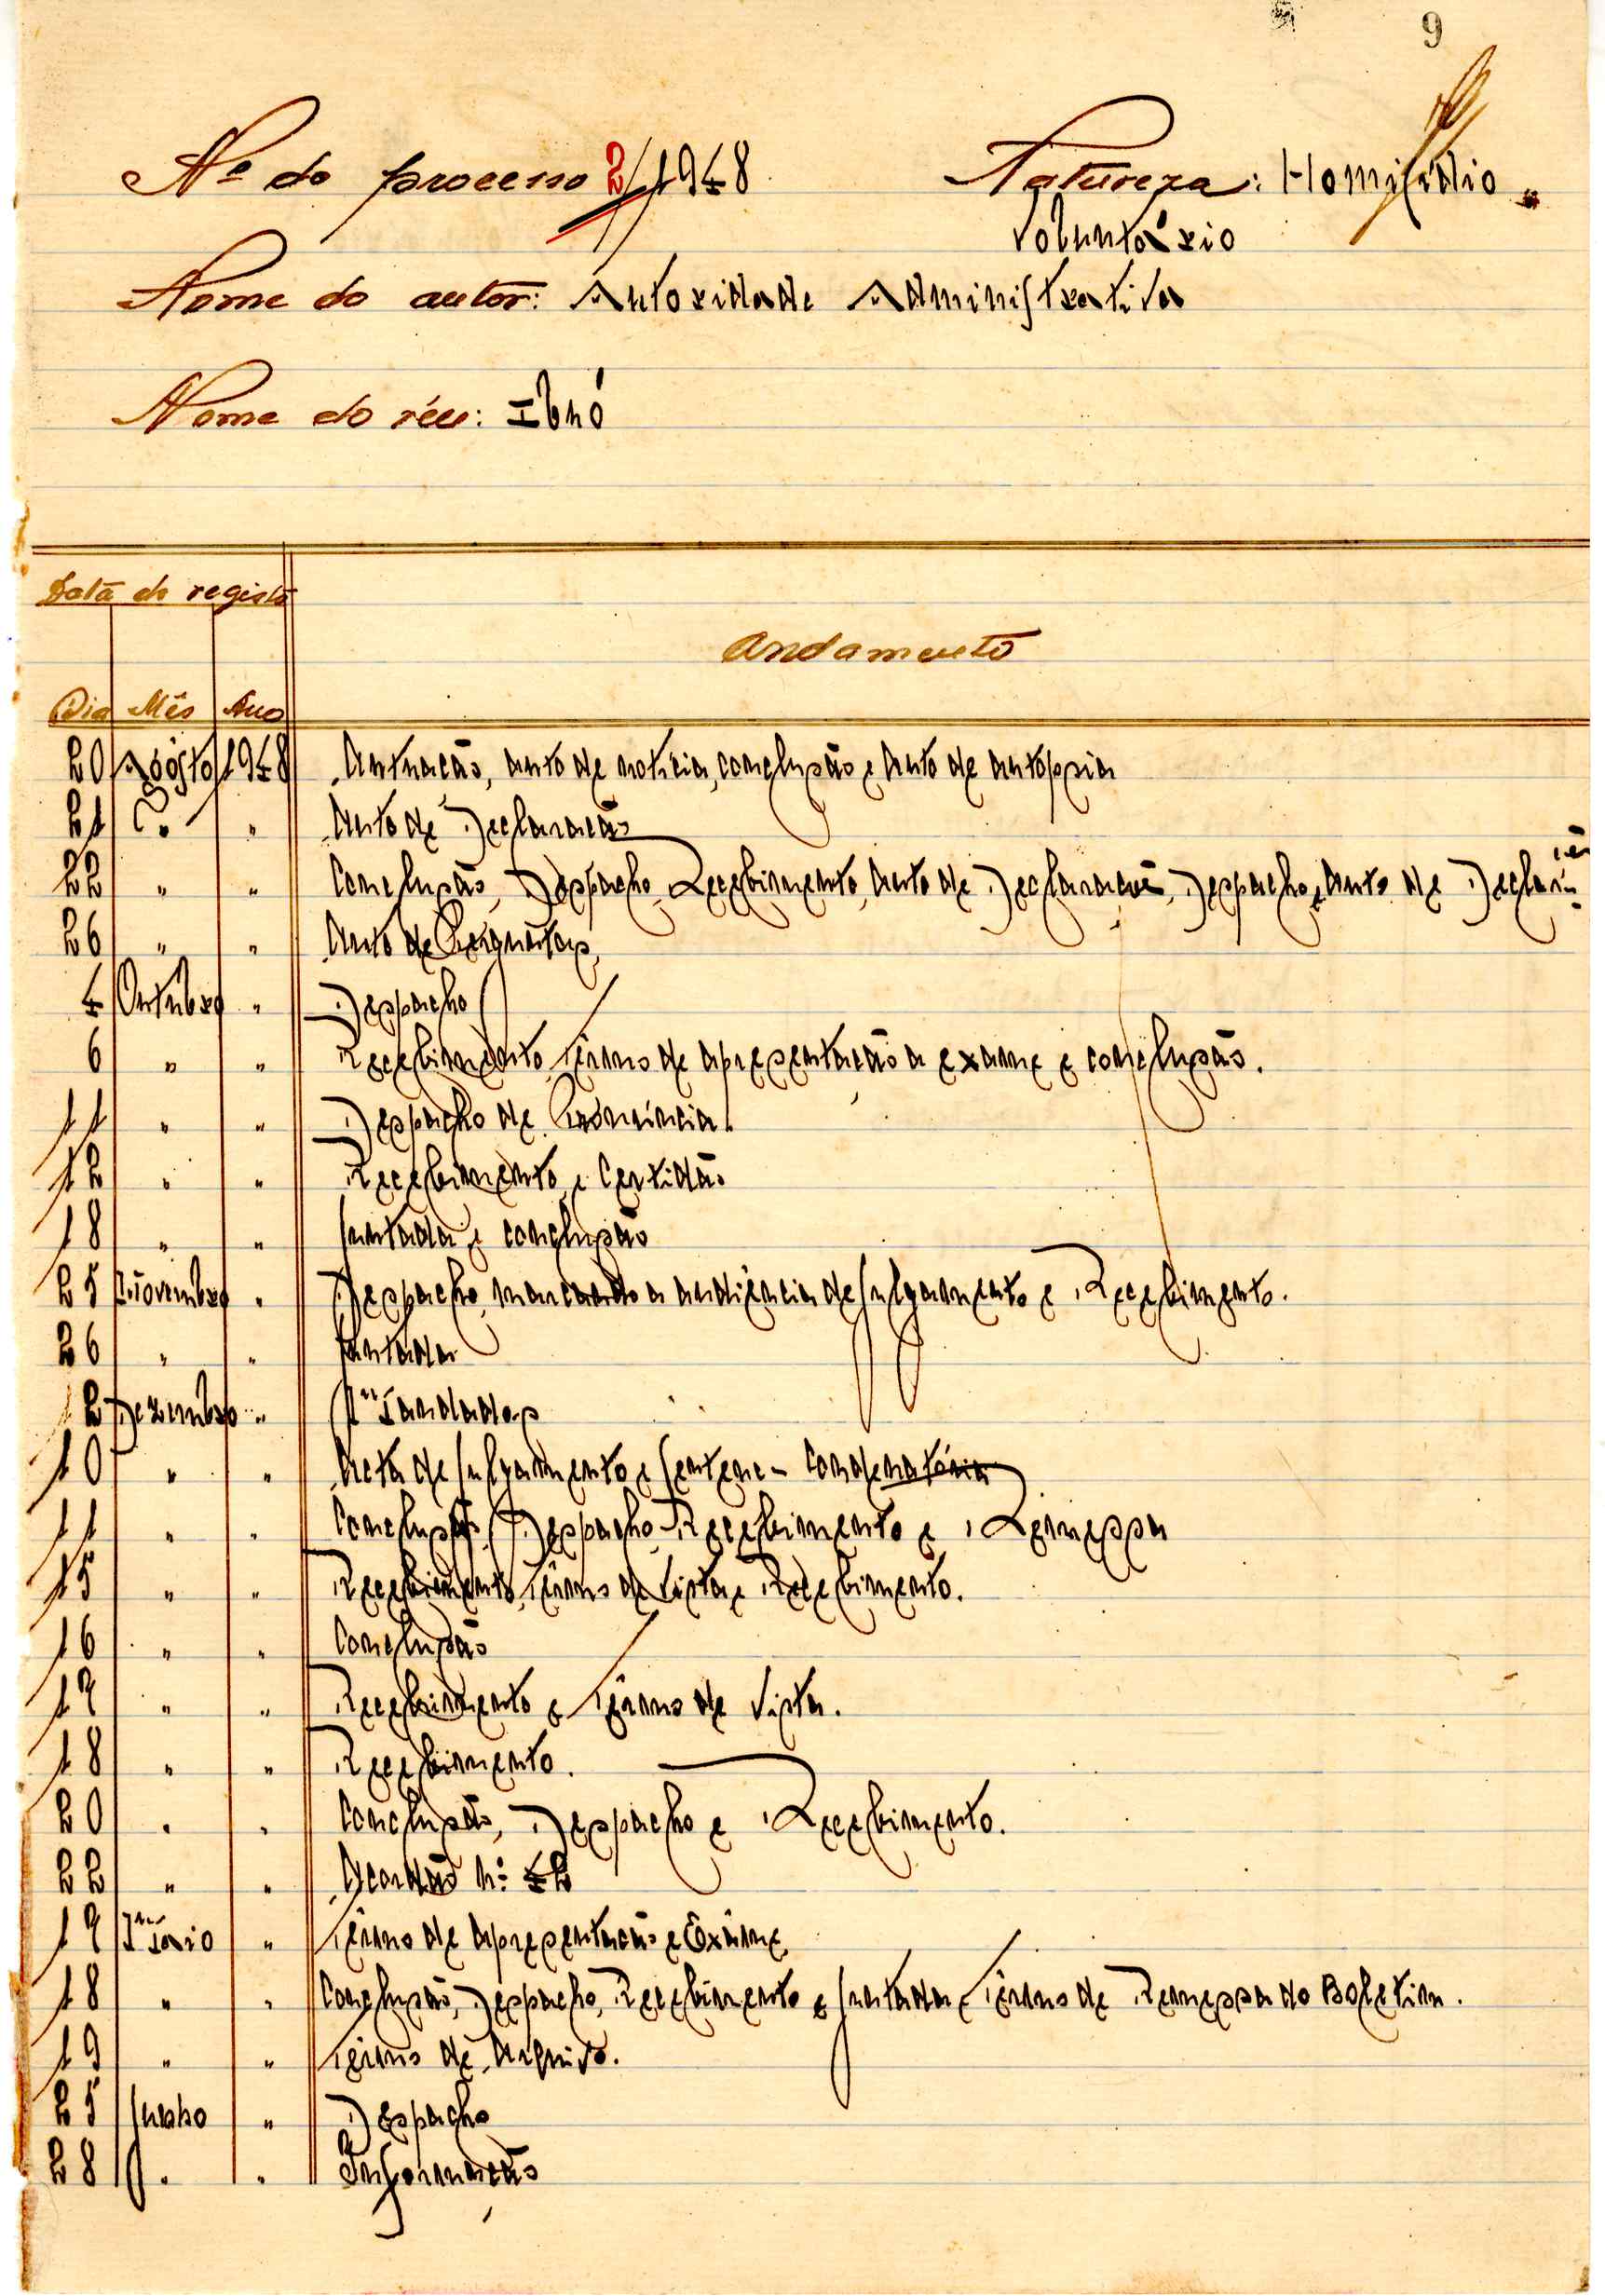 9
Nº do processo 2/1948 Natureza: Homicídio
voluntário
Nome do autor: Autoridade Administrativa
Nome do réu: Ibnó
Data do registo
Andamento
Dia Mês Ano
20 Agosto 1948 Autuação, auto de noticia, conclusão e auto de autópsia
21 " " Auto de Declaração
22 " " Conclusão, Despacho, Recebimento, Auto de Declarações, Despacho, Auto de
26 " " Auto de Perguntas,
4 Outubro " Despacho
6 " " Recebimento, Têrmo de apresentação a exame e conclusão.
11 " " Despacho de Pronúncia.
12 " " Recebimento e Certidão
18 " " Juntada e conclusão
25 Novembro " Despacho, marcando a audiência de Julgamento e Recebimento.
26 " " Juntada
2 Dezembro " Mandados
10 " " Acta de Julgamento e Condenatória
11 " " Conclusão, Despacho Recebimento e Remessa
15 " " Recebimento, Têrmo de Vista e Recebimento.
16 " " Conclusão
17 " " Recebimento e Têrmo de Vista.
18 " " Recebimento.
20 " " Conclusão, Despacho e Recebimento.
22 " " Acordão nº 42
17 Maio " Têrmo de apresentação e Exâme
18 " " Conclusão, Despacho, Recebimento e Juntada e Têrmo de Remessa do Boletim.
19 " " Têrmo de Arquivo.
25 Junho " Despacho
28 " " Informação